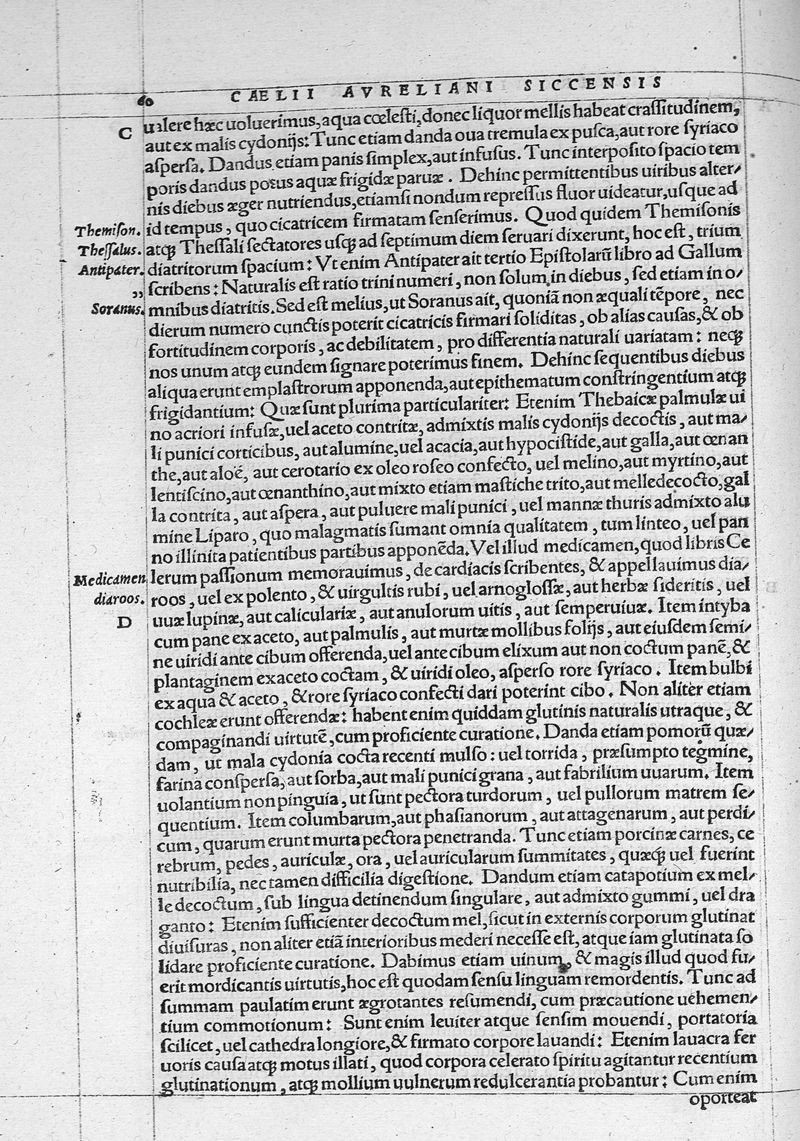 60 CAELII AVRELIANI SICCENSIS
C ualere hæc uoluerimus, aqua cœlesti, donec liquor mellis habeat crassitudinem,
aut ex malis cydonijs: Tunc etiam danda oua tremula ex pusca, aut rore syriaco
aspersa. Dandus etiam panis simplex, aut infusus. Tunc interposito spacio tem
poris dandus potus aquæ frigidæ paruæ. Dehinc permittentibus uiribus alter/
nis diebus æger nutriendus, etiamsi nondum repressus fluor uideatur, usque ad
Themison. id tempus, quo cicatricem firmatam senserimus. Quod quidem Themisonis
Thessalus. atq; Thessali sectatores usq; ad septimum diem seruari dixerunt, hoc est, trium
Antipater. diatritorum spacium: Vt enim Antipater ait tertio Epistolarū libro ad Gallum
,, scribens: Naturalis est ratio trini numeri, non solum in diebus, sed etiam in o/
Soranus. mnibus diatritis. Sed est melius, ut Soranus ait, quoniā non æquali tēpore, nec
dierum numero cunctis poterit cicatricis firmari soliditas, ob alias causas, & ob
fortitudinem corporis, ac debilitatem, pro differentia naturali uariatam: neq;
nos unum atq; eundem signare poterimus finem. Dehinc sequentibus diebus
aliqua erunt emplastrorum apponenda, aut epithematum constringentium atq;
frigidantium: Quæ sunt plurima particulariter: Etenim Thebaicæ palmulæ ui
no acriori infusæ, uel aceto contritæ, admixtis malis cydonijs decoctis, aut ma/
li punici corticibus, aut alumine, uel acacia, aut hypocistide, aut galla, aut œnan
the, aut aloë, aut cerotario ex oleo roseo confecto, uel melino, aut myrtino, aut
lentiscino, aut œnanthino, aut mixto etiam mastiche trito, aut melle decocto, gal
la contrita, aut aspera, aut puluere mali punici, uel mannæ thuris admixto alu
mine Liparo, quo malagmatis sumant omnia qualitatem, tum linteo, uel pan
no illinita patientibus partibus apponēda. Vel illud medicamen, quod libris Ce
Medicamen lerum passionum memorauimus, de cardiacis scribentes, & appellauimus dia/
diaroos. roos, uel ex polento, & uirgultis rubi, uel arnoglossæ, aut herbæ sideritis, uel
D uuæ lupinæ, aut caliculariæ, aut anulorum uitis, aut semperuiuæ. Item intyba
cum pane ex aceto, aut palmulis, aut murtæ mollibus folijs, aut eiusdem semi/
ne uiridi ante cibum offerenda, uel ante cibum elixum aut non coctum panē, &
plantaginem ex aceto coctam, & uiridi oleo, asperso rore syriaco. Item bulbi
ex aqua & aceto, & rore syriaco confecti dari poterint cibo. Non aliter etiam
cochleæ erunt offerendæ: habent enim quiddam glutinis naturalis utraque, &
compaginandi uirtutē, cum proficiente curatione. Danda etiam pomorū quæ/
dam, ut mala cydonia cocta recenti mulso: uel torrida, præsumpto tegmine,
farina conspersa, aut sorba, aut mali punici grana, aut fabrilium uuarum. Item
uolantium non pinguia, ut sunt pectora turdorum, uel pullorum matrem se/
quentium. Item columbarum, aut phasianorum, aut attagenarum, aut perdi/
cum, quarum erunt murta pectora penetranda. Tunc etiam porcinæ carnes, ce
rebrum, pedes, auriculæ, ora, uel auricularum summitates, quæq; uel fuerint
nutribilia, nec tamen difficilia digestione. Dandum etiam catapotium ex mel/
le decoctum, sub lingua detinendum singulare, aut admixto gummi, uel dra
ganto: Etenim sufficienter decoctum mel, sicut in externis corporum glutinat
diuisuras, non aliter etiā interioribus mederi necesse est, atque iam glutinata so
lidare proficiente curatione. Dabimus etiam uinum, & magis illud quod fu/
erit mordicantis uirtutis, hoc est quodam sensu linguam remordentis. Tunc ad
summam paulatim erunt ægrotantes resumendi, cum præcautione uehemen/
tium commotionum: Sunt enim leuiter atque sensim mouendi, portatoria
scilicet, uel cathedra longiore, & firmato corpore lauandi: Etenim lauacra fer
uoris causa atq; motus illati, quod corpora celerato spiritu agitantur recentium
glutinationum, atq; mollium uulnerum redulcerantia probantur: Cum enim
oporteat